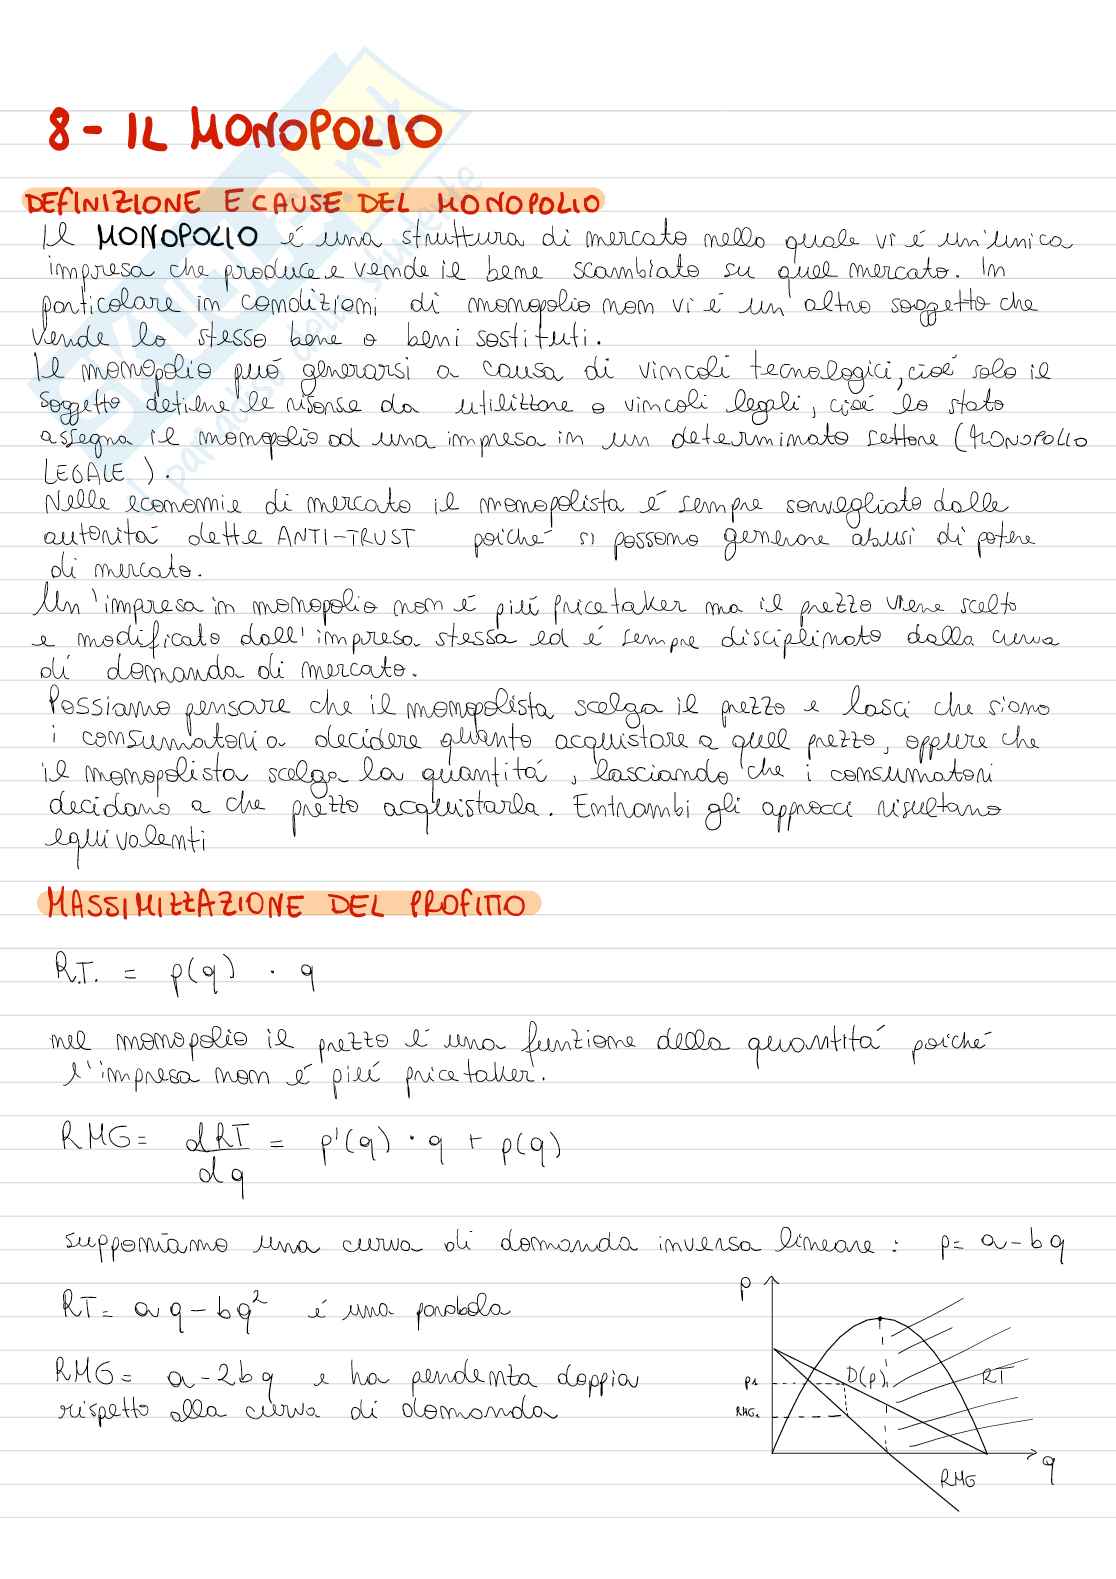 8 - IL MONOPOLIO
DEFINIZIONE E CAUSE DEL MONOPOLIO
Il MONOPOLIO é una struttura di mercato nello quale vi é un'unica
impresa che produce e vende il bene scambiato su quel mercato. In
particolare in condizioni di monopolio non vi é un'altro soggetto che
vende lo stesso bene o beni sostituti.
Il monopolio puó generarsi a causa di vincoli tecnologici, cioé solo il
soggetto detiene le risorse da utilizzare o vincoli legali, cioé lo stato
assegna il monopolio ad una impresa in un determinato settore (MONOPOLIO
LEGALE).
Nelle economie di mercato il monopolista é sempre sorvegliato dalle
autoritá dette ANTI-TRUST poiché si possono generare abusi di potere
di mercato.
Un'impresa in monopolio non é piú price taker ma il prezzo viene scelto
e modificato dall'impresa stessa ed é sempre disciplinato dalla curva
di domanda di mercato.
Possiamo pensare che il monopolista scelga il prezzo e lasci che siano
i consumatori a decidere quanto acquistare a quel prezzo, oppure che
il monopolista scelga la quantitá, lasciando che i consumatori
decidano a che prezzo acquistarla. Entrambi gli approcci risultano
equivalenti
MASSIMIZZAZIONE DEL PROFITTO
R.T. = p(q) · q
nel monopolio il prezzo é una funzione della quantitá poiché
l'impresa non é piú price taker.
RMG = dRT/dq = p'(q) · q + p(q)
supponiamo una curva di domanda inversa lineare: p = a - bq
RT = aq - bq² é una parabola
RMG = a - 2bq e ha pendenza doppia
rispetto alla curva di domanda
p
p1
D(p)
RT
q
RMG
SKUOLA.net
il paradiso dello studente